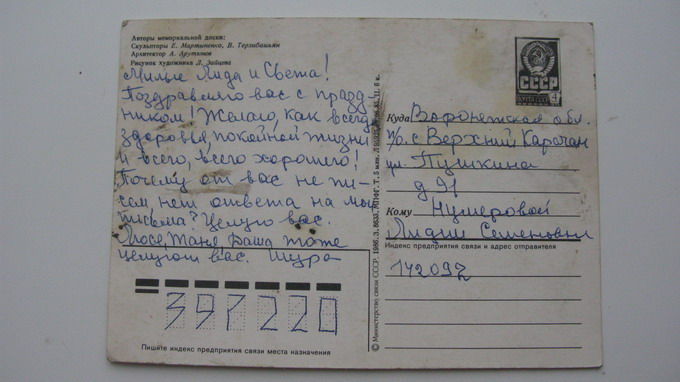 Авторы мемориальной доски:
Скульпторы Е. Мартыненко, В. Терзибашьян
Архитектор А. Арутюнов
Рисунок художника Л. Зайцева
Милые Лида и Света!
Поздравляю вас с празд
ником! Желаю, как всегда
здоровья, покойной жизни
и всего, всего хорошего!
Почему от вас не пи-
сем нет ответа на мои
письма? Целую вас.
Таня тоже
целуют вас. Шура
397220
Пишите индекс предприятия связи места назначения
© Министерство связи СССР. 1986.
СССР
Куда Воронежская обл.
п/о с Верхний Карачан
ул. Пушкина
д 91
Кому Нумеровой
Лидии Семеновны
Индекс предприятия связи и адрес отправителя
142092